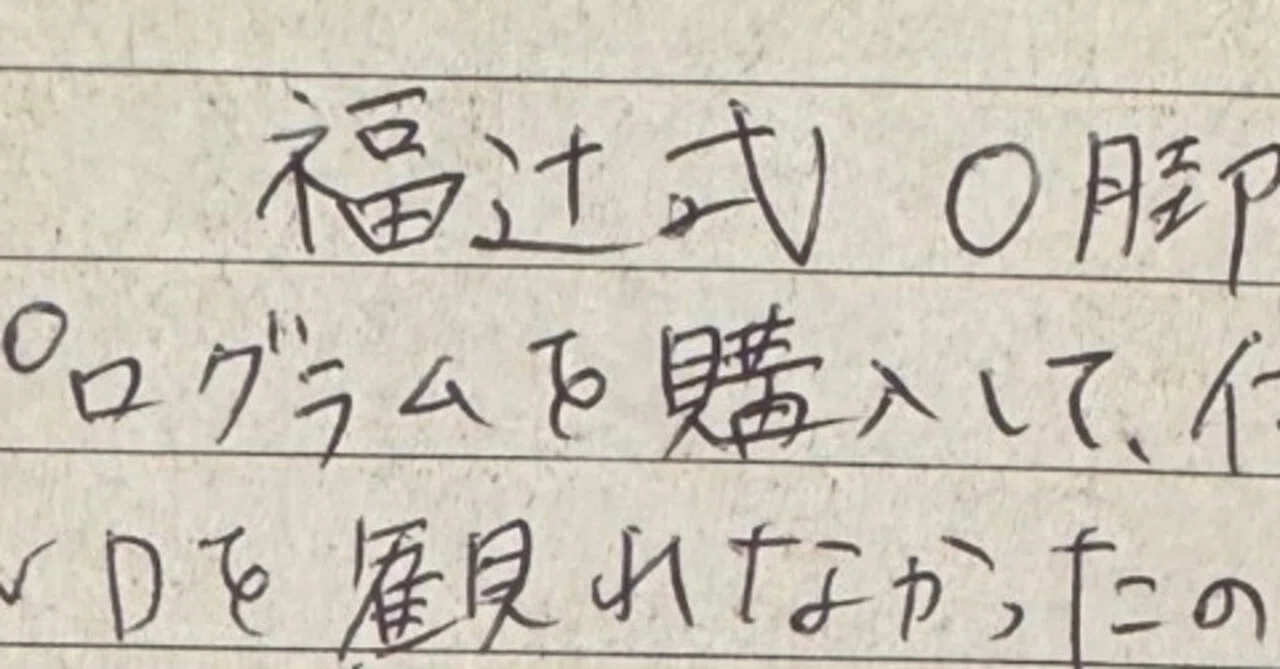 福辻式 O脚
プログラムを購入して、
VDを観れなかったの